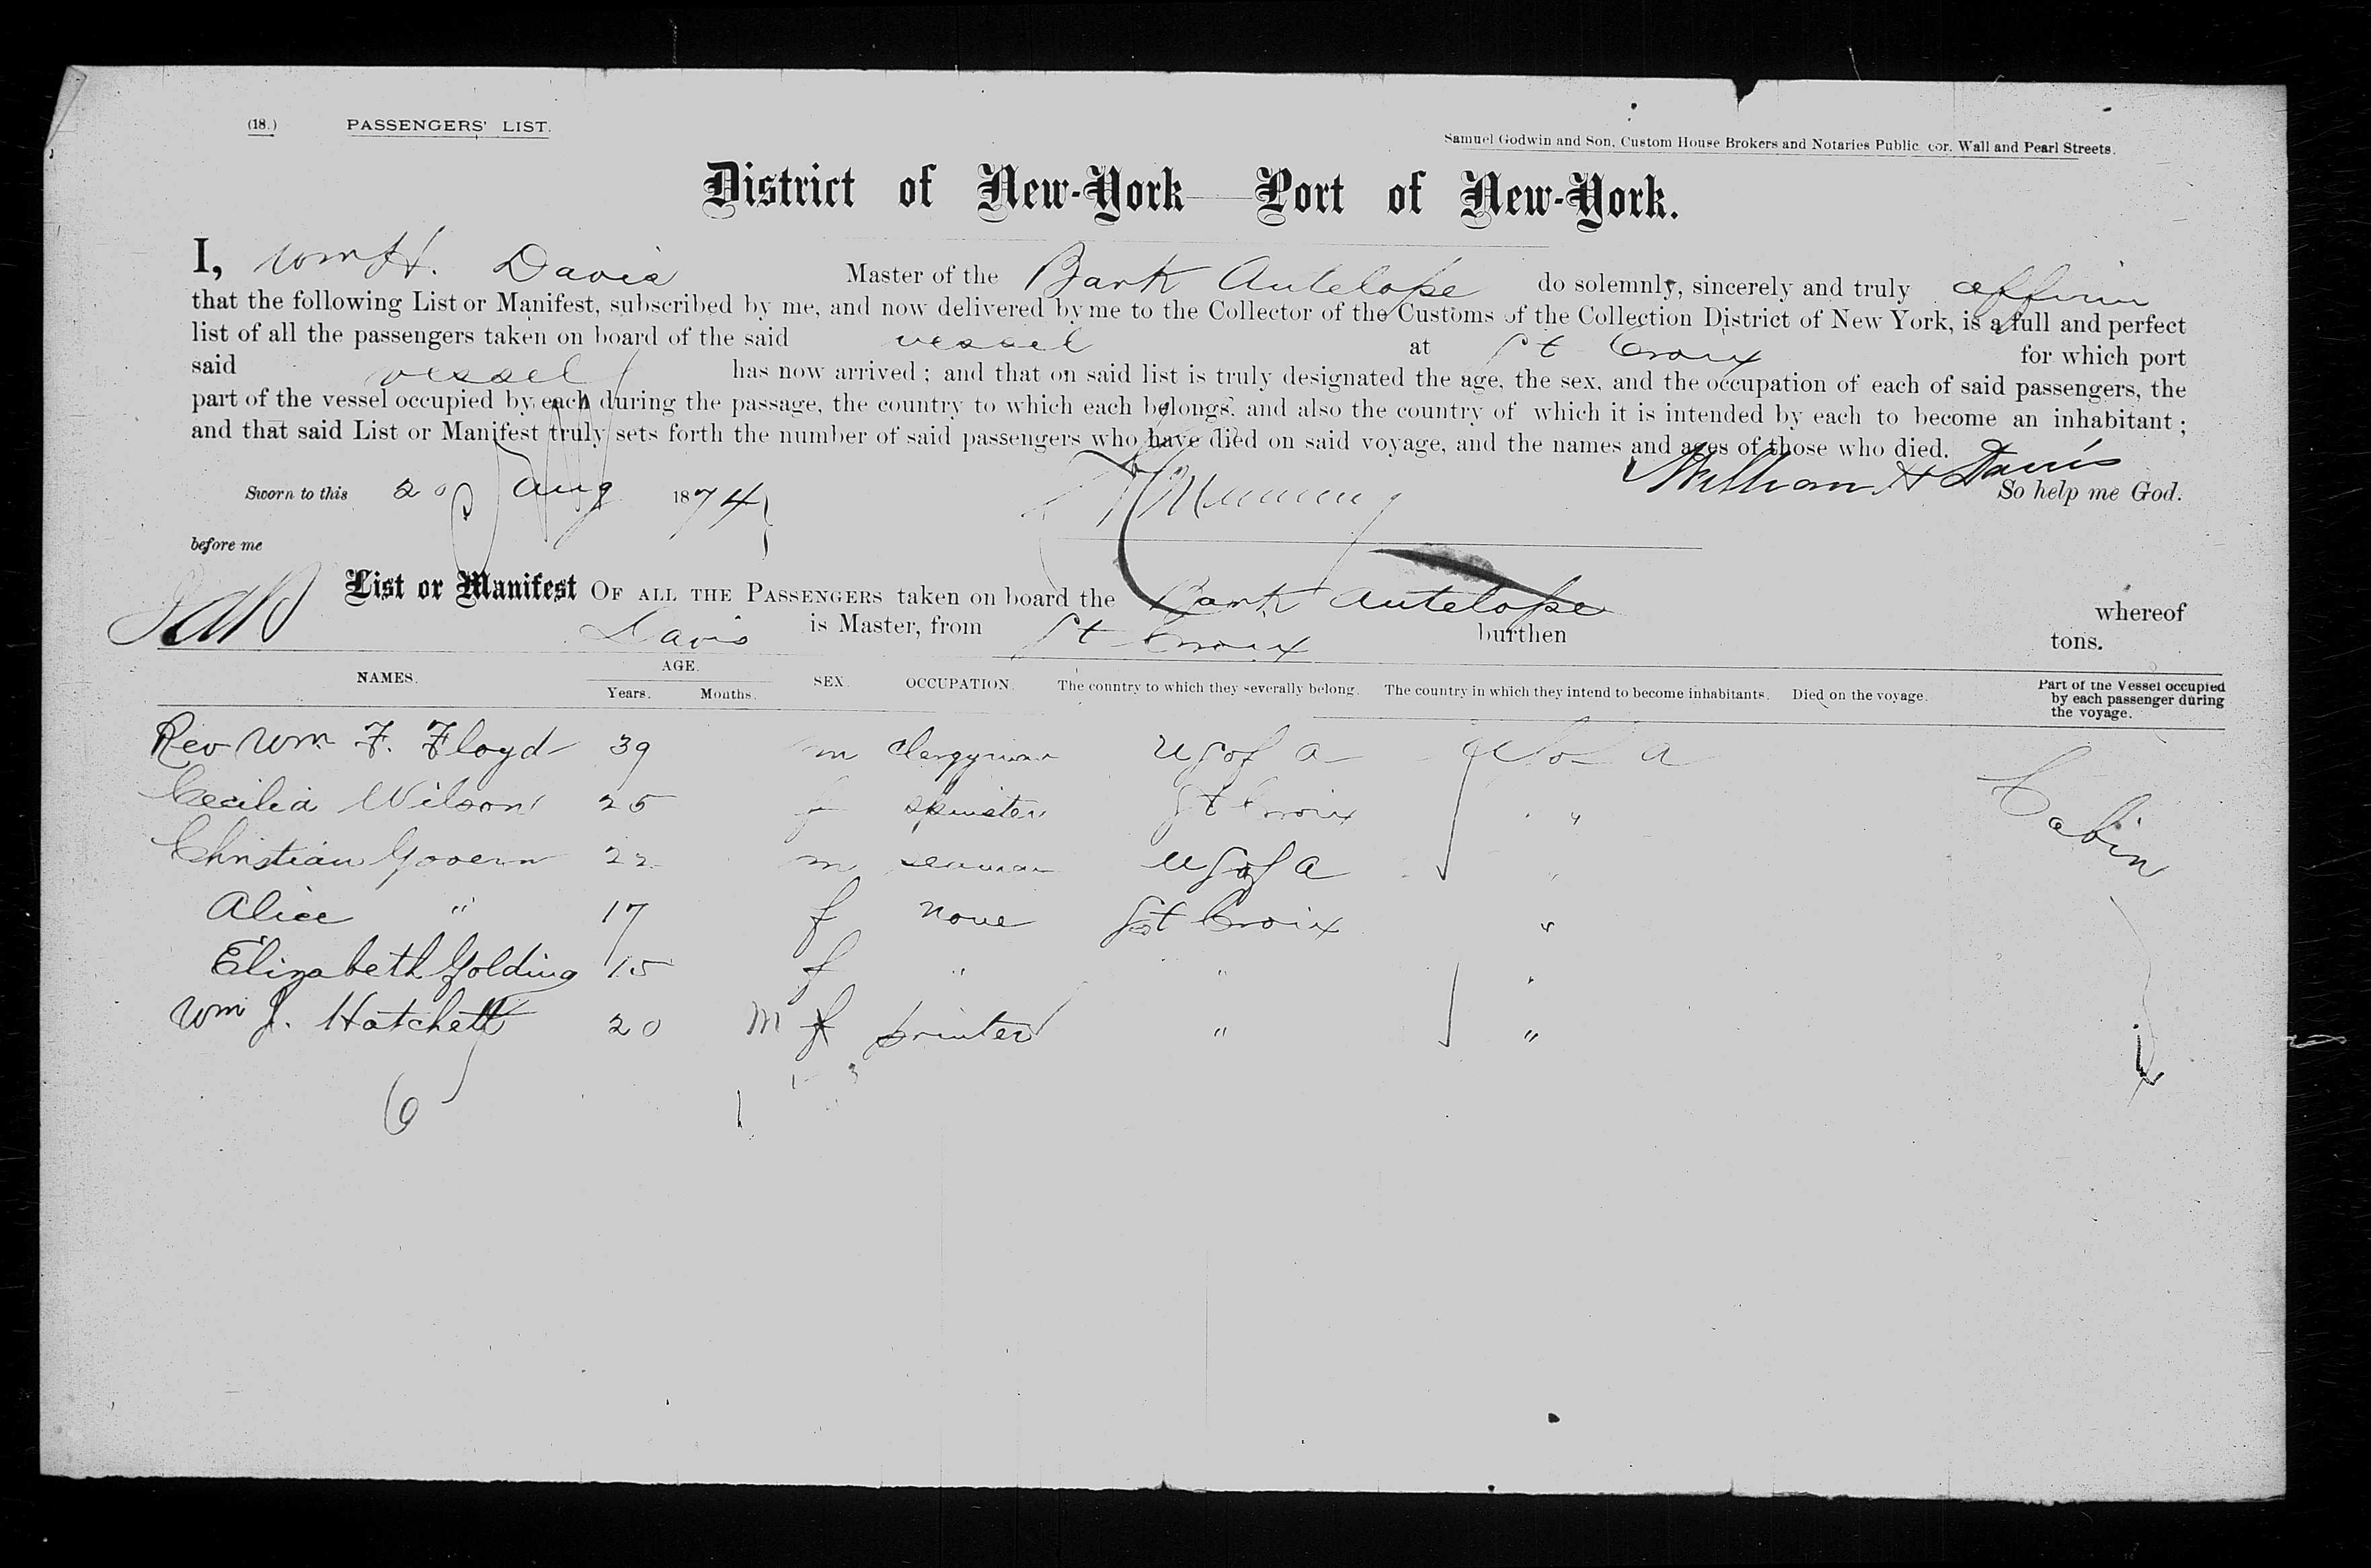 (18.) PASSENGERS' LIST.
Samuel Godwin and Son, Custom House Brokers and Notaries Public cor. Wall and Pearl Streets.
District of New-York—Port of New-York.
I, Wm H. Davis Master of the Bark Antelope do solemnly, sincerely and truly affirm
that the following List or Manifest, subscribed by me, and now delivered by me to the Collector of the Customs of the Collection District of New York, is a full and perfect
list of all the passengers taken on board of the said vessel at St Croix for which port
said vessel has now arrived; and that on said list is truly designated the age, the sex, and the occupation of each of said passengers, the
part of the vessel occupied by each during the passage, the country to which each belongs, and also the country of which it is intended by each to become an inhabitant;
and that said List or Manifest truly sets forth the number of said passengers who have died on said voyage, and the names and ages of those who died.
William H Davis
Sworn to this 20 Aug 1874 So help me God.
before me
List or Manifest OF ALL THE PASSENGERS taken on board the Bark Antelope whereof
Davis is Master, from St Croix burthen tons.
NAMES. AGE. Years. Months. SEX. OCCUPATION. The country to which they severally belong. The country in which they intend to become inhabitants. Died on the voyage. Part of the Vessel occupied by each passenger during the voyage.
Rev Wm F. Floyd 39 m Clergyman U S of A U S of A Cabin
Cecilia Wilson 25 f spinster St Croix "
Christian Govern 22 m seaman U S of A "
Alice " 17 f none St Croix "
Elizabeth Golding 15 f " " "
Wm J. Hatchett 20 M f printer " "
6